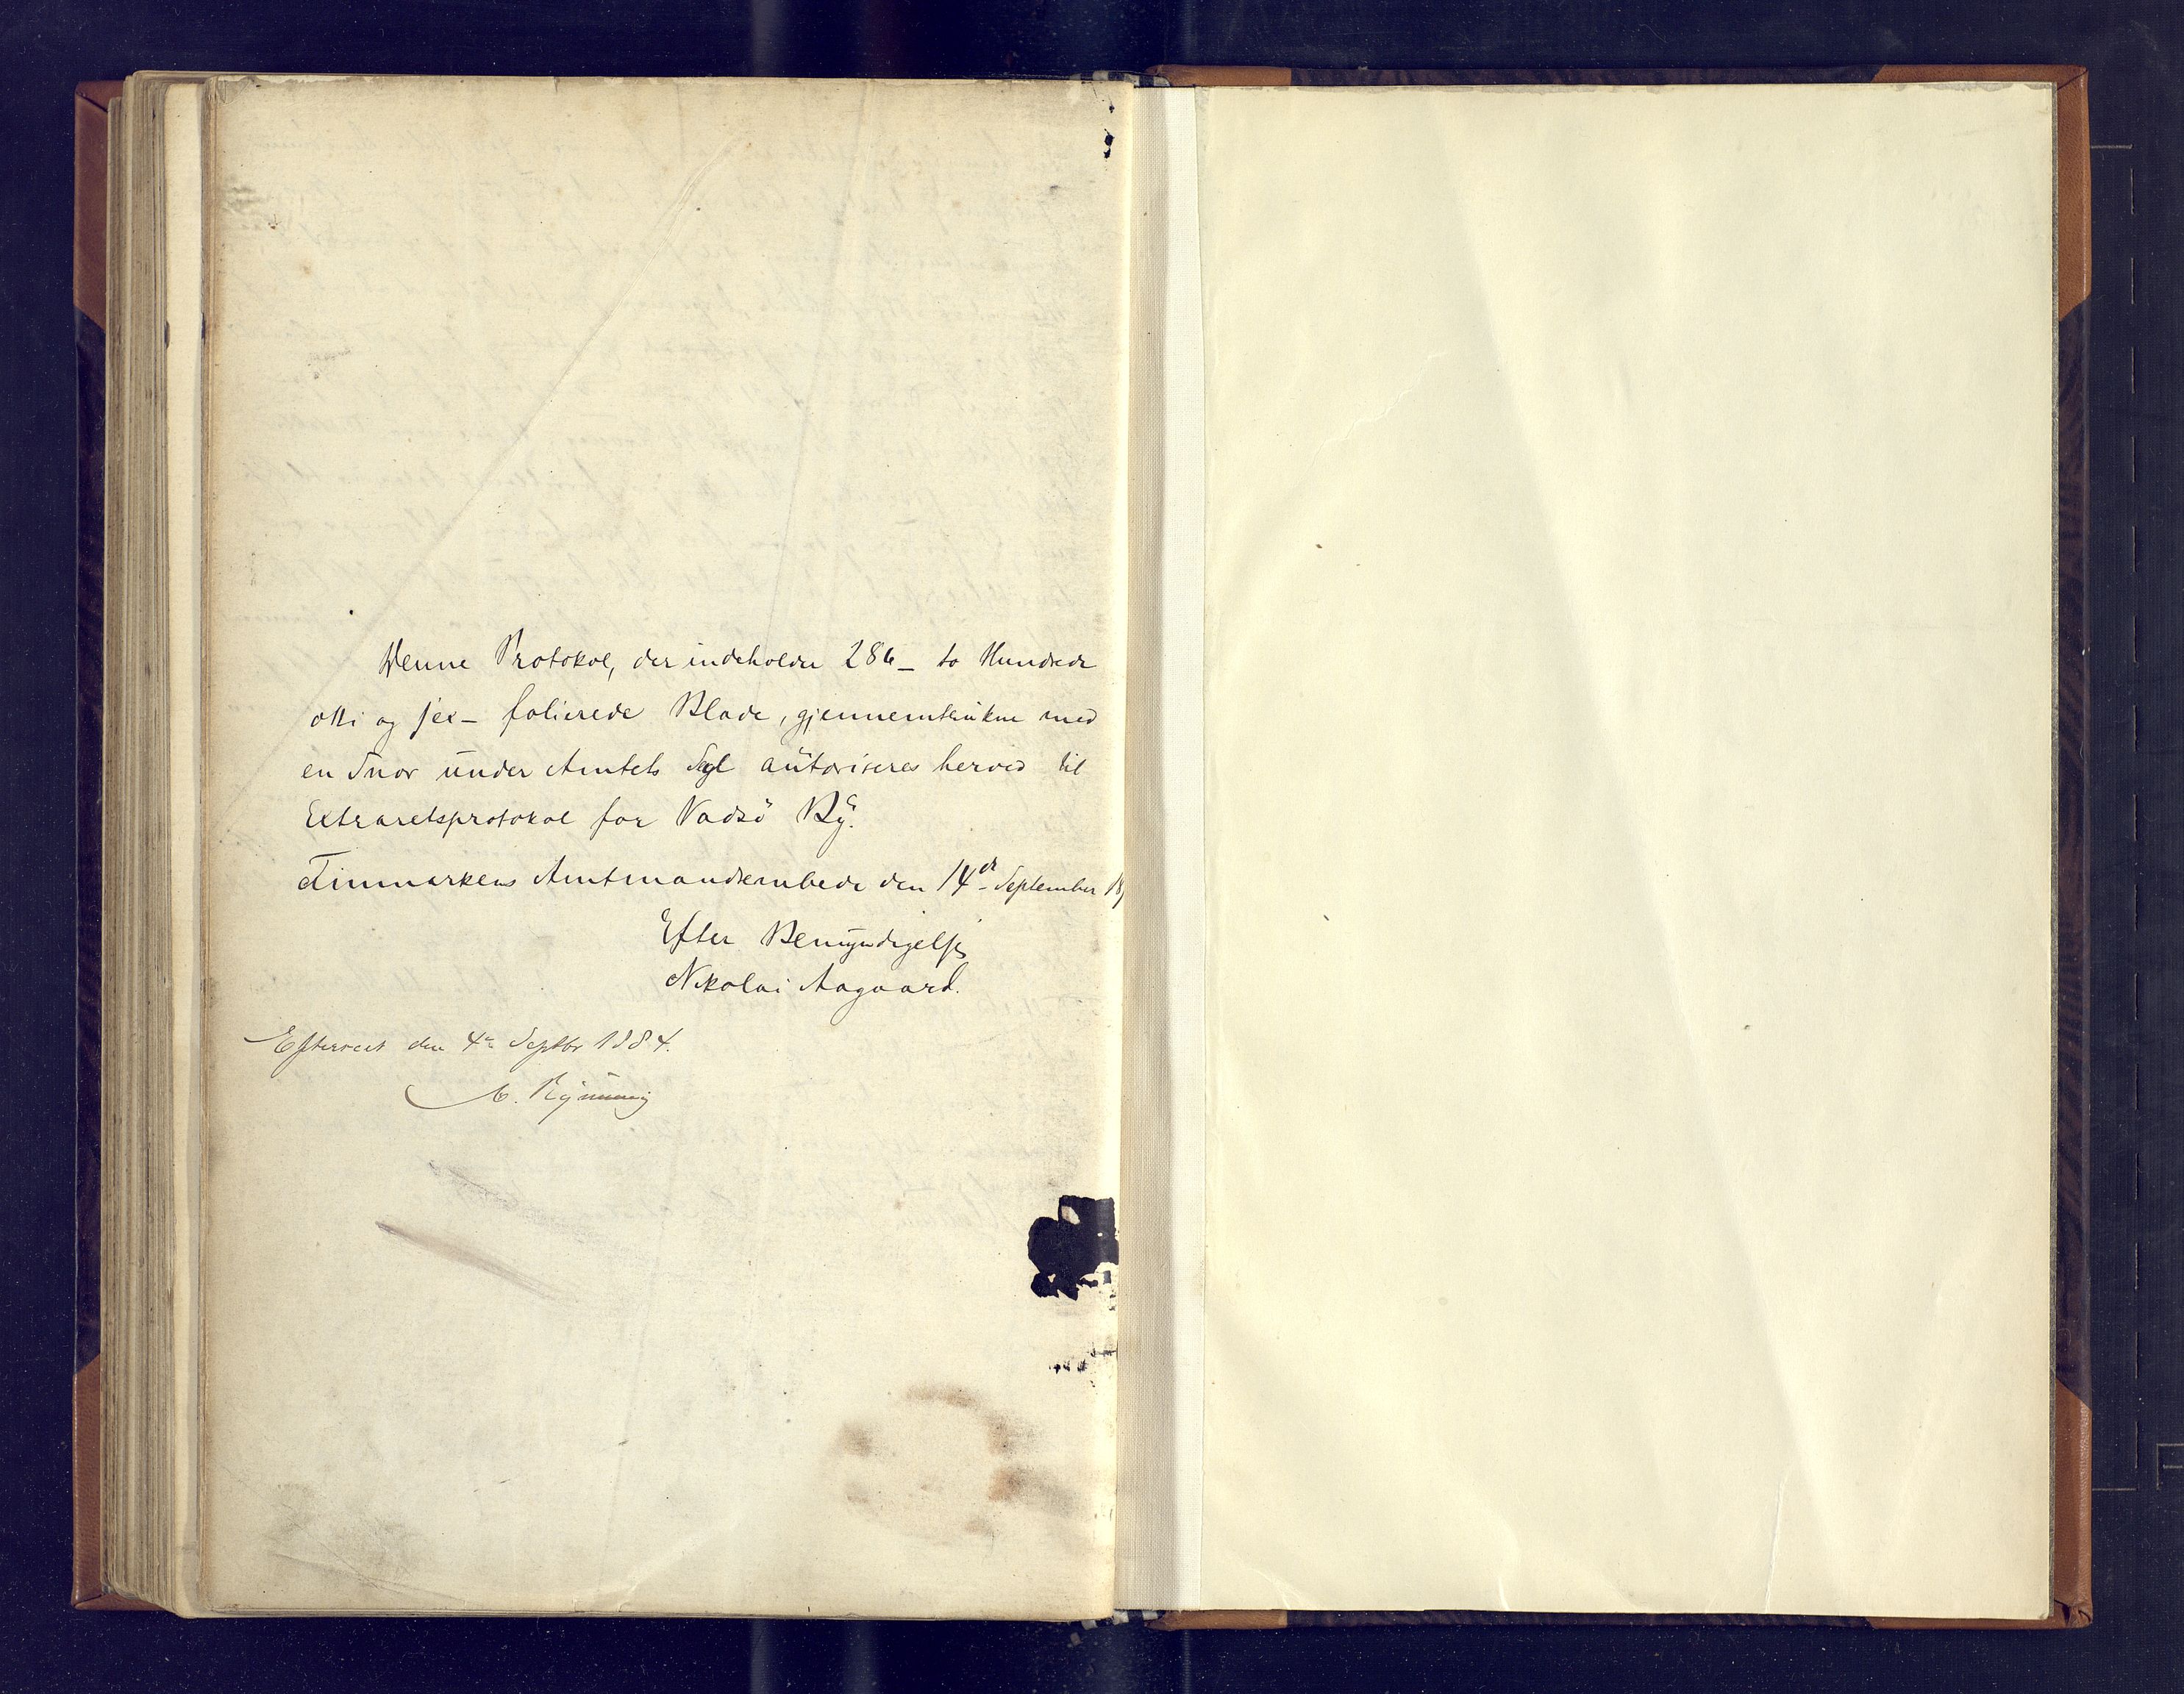 Denne Protokol, der indeholder 286 - to Hundrede
otti og sex - folierede Blade, gjennemtrukne med
en Snor under Amtets Segl autoriseres herved til
Extraretsprotokol for Vadsö By.
Finmarkens Amtmandsembede den 14de September 18
Efter Bemyndigelse
Nikolai Aagaard.
Efterseet den 4de Septbr 1884.
Rynning